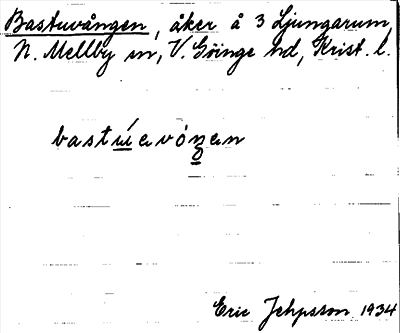 Bastuvången, åker å 3 Ljungarum,
N. Mellby sn, V. Göinge hd, Krist. l.
Eric Jehpsson 1934